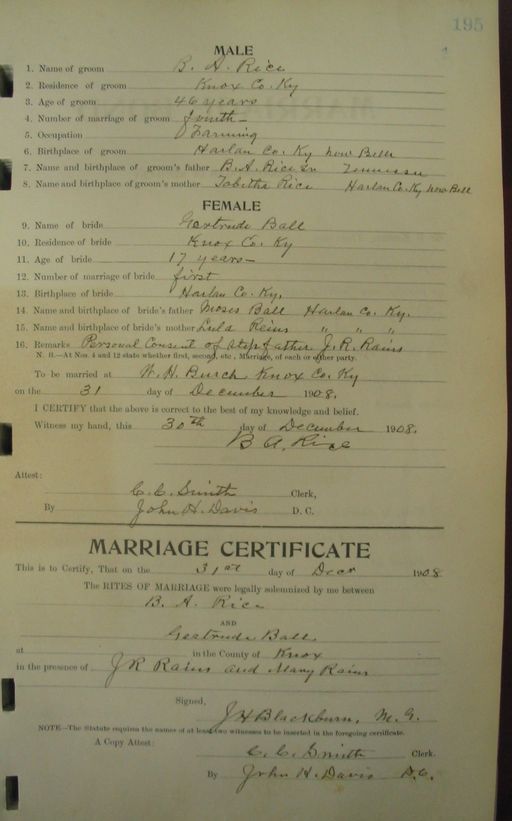 195
MALE
1. Name of groom B. A. Rice
2. Residence of groom Knox Co. Ky
3. Age of groom 46 years
4. Number of marriage of groom fourth
5. Occupation Farming
6. Birthplace of groom Harlan Co. Ky now Bell
7. Name and birthplace of groom's father B. A. Rice Sr Tennessee
8. Name and birthplace of groom's mother Tabitha Rice Harlan Co. Ky now Bell
FEMALE
9. Name of bride Gertrude Ball
10. Residence of bride Knox Co. Ky
11. Age of bride 17 years
12. Number of marriage of bride first
13. Birthplace of bride Harlan Co. Ky.
14. Name and birthplace of bride's father Moses Ball Harlan Co. Ky.
15. Name and birthplace of bride's mother Lula Rains " " "
16. Remarks Personal Consent of Step father J. R. Rains
N. B.—At Nos. 4 and 12 state whether first, second, etc., Marriage, of each or either party.
To be married at W. H. Burch Knox Co. Ky
on the 31 day of December 1908.
I CERTIFY that the above is correct to the best of my knowledge and belief.
Witness my hand, this 30th day of December 1908.
B A. Rice
Attest:
C. C. Smith Clerk,
By John H. Davis D. C.
MARRIAGE CERTIFICATE
This is to Certify, That on the 31st day of Decr 1908
The RITES OF MARRIAGE were legally solemnized by me between
B. A. Rice
AND
Gertrude Ball
at in the County of Knox
in the presence of J R Rains and Mary Rains
Signed,
J H Blackburn, M. G.
NOTE—The Statute requires the names of at least two witnesses to be inserted in the foregoing certificate.
A Copy Attest:
C. C. Smith Clerk.
By John H. Davis D.C.